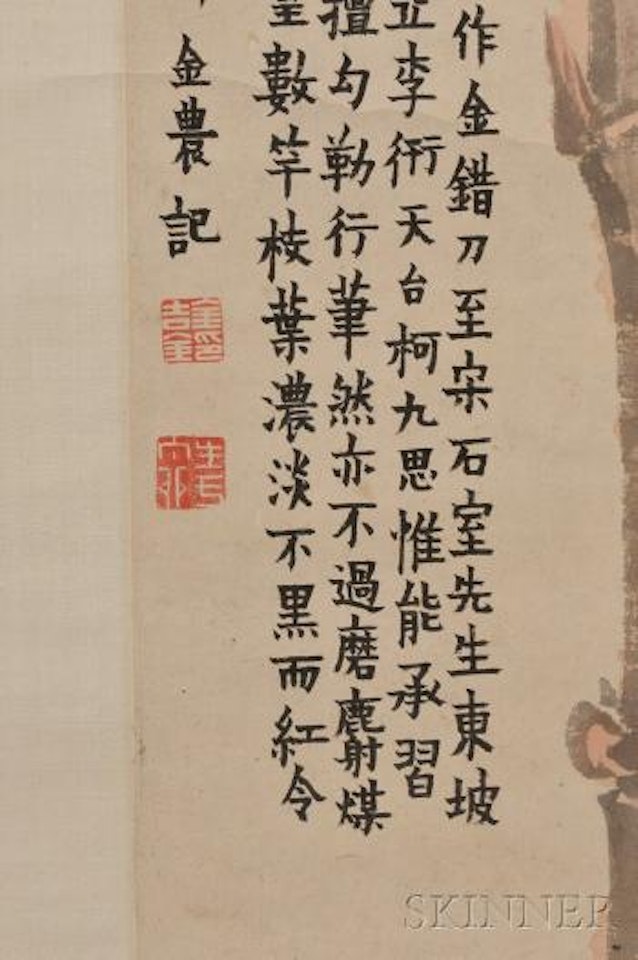 作金錯刀至宋石室先生東坡
李衎天台柯九思惟能承習
擅勾勒行筆然亦不過磨麝煤
數竿枝葉濃淡不黑而紅令
金農記
SKINNER